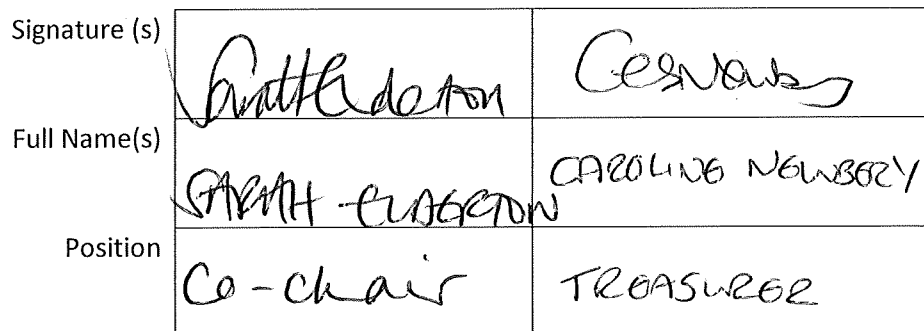 Signature (s)
Full Name(s)
SARAH CAROLINE NEWBERY
Position
Co-chair TREASURER